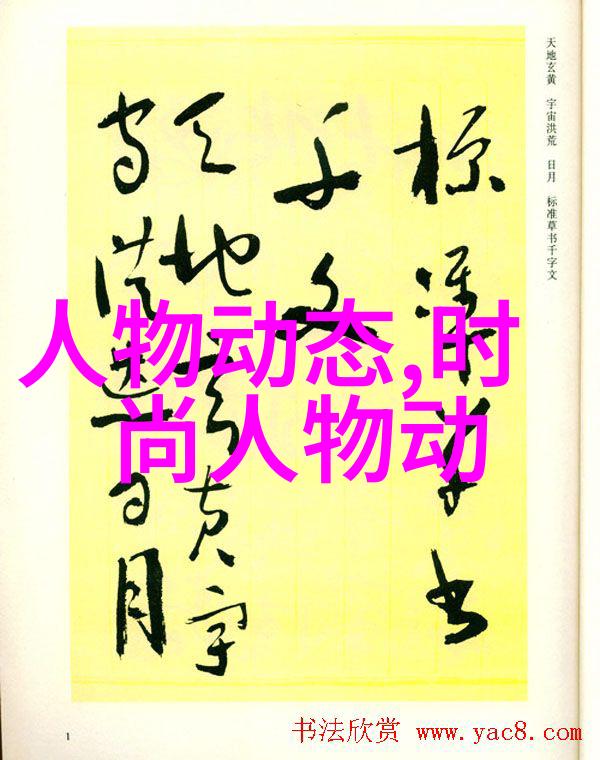 天地玄黄 宇宙洪荒 日月 标准草书千字文
標準草書
千文
天地玄黄宇
宙洪荒日月
人物动态,时
尚人物动
1
书法欣赏 www.yac8.com